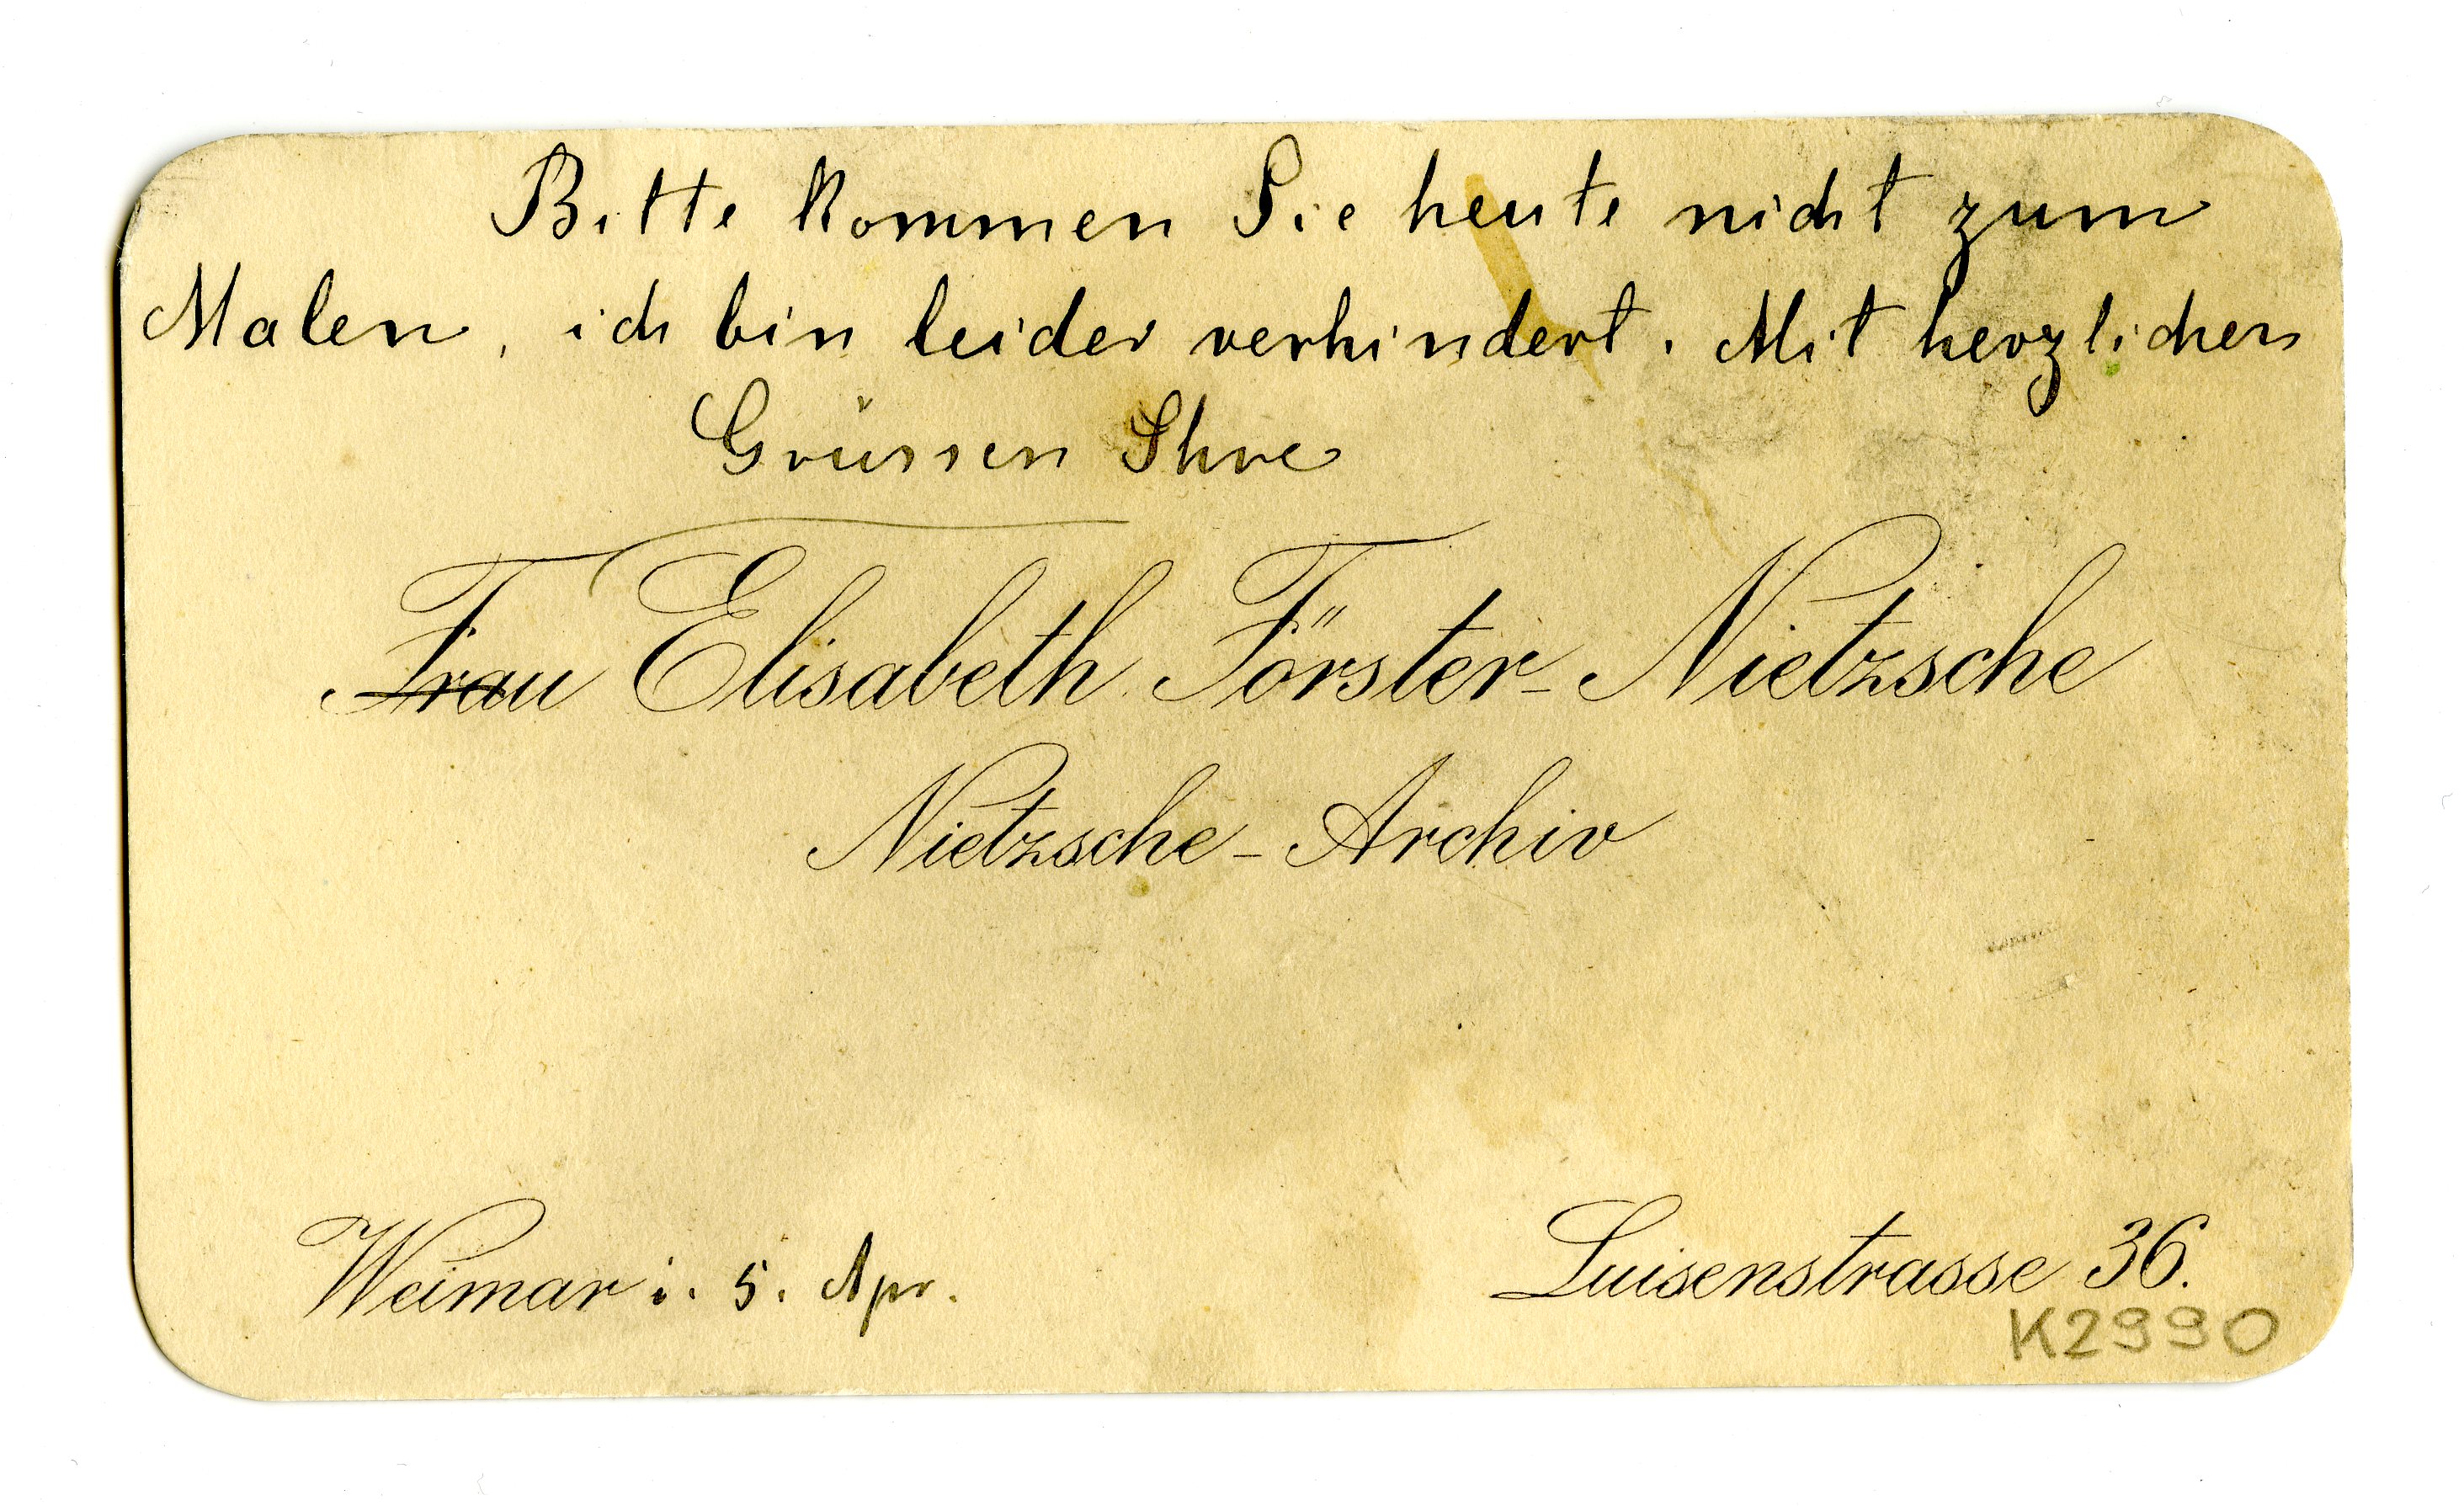 Bitte kommen Sie heute nicht zum
Malen, ich bin leider verhindert. Mit herzlichen
Grüssen Ihre
Frau Elisabeth Förster-Nietzsche
Nietzsche-Archiv
Weimar i. 5. Apr.
Luisenstrasse 36.
K2990